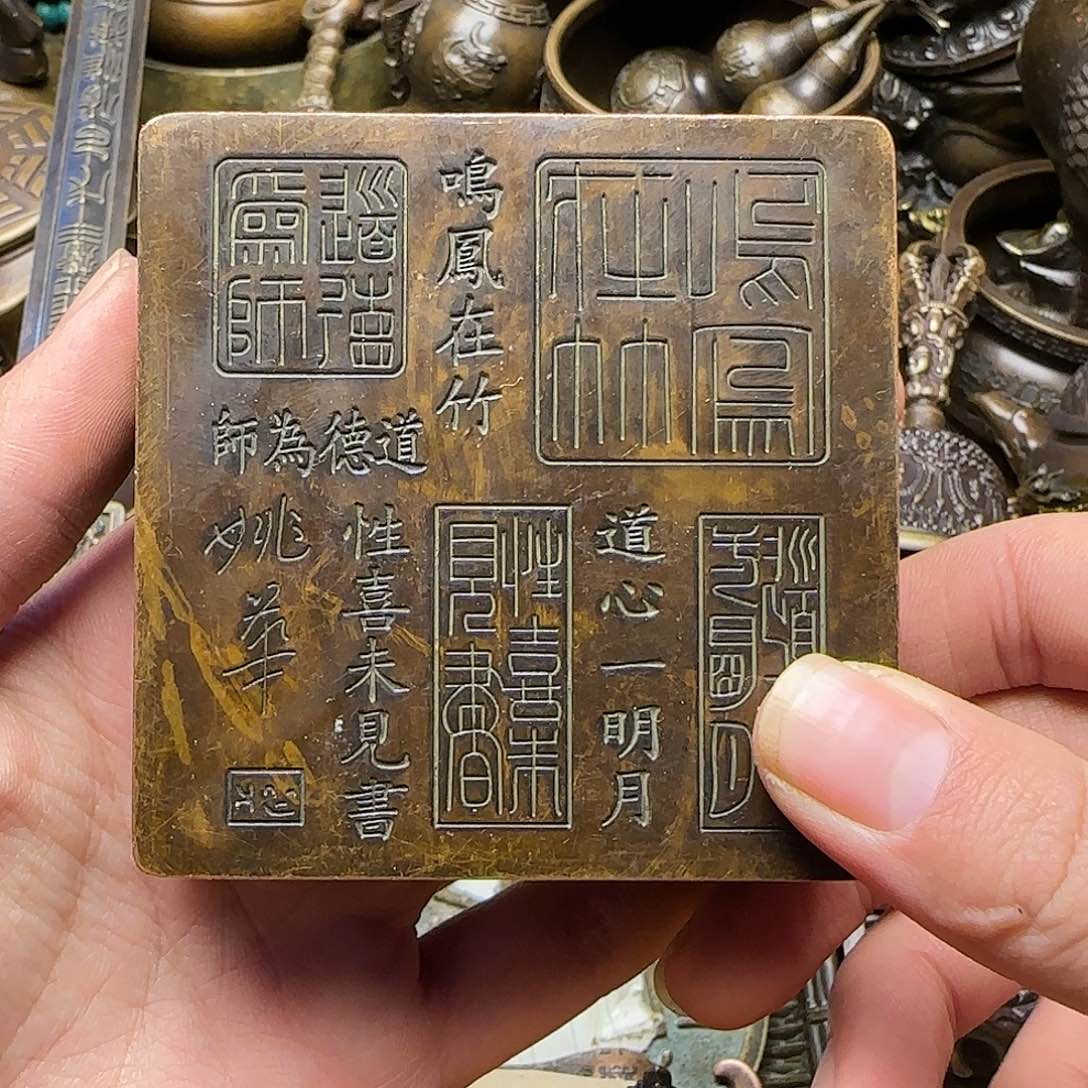 鳴鳳在竹
鳴鳳在竹
道德為師
道德為師
道心一明月
性喜未見書
性喜未見書
姚華